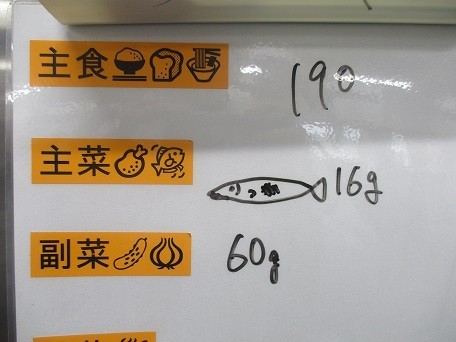 主食 190
主菜 16g
副菜 60g